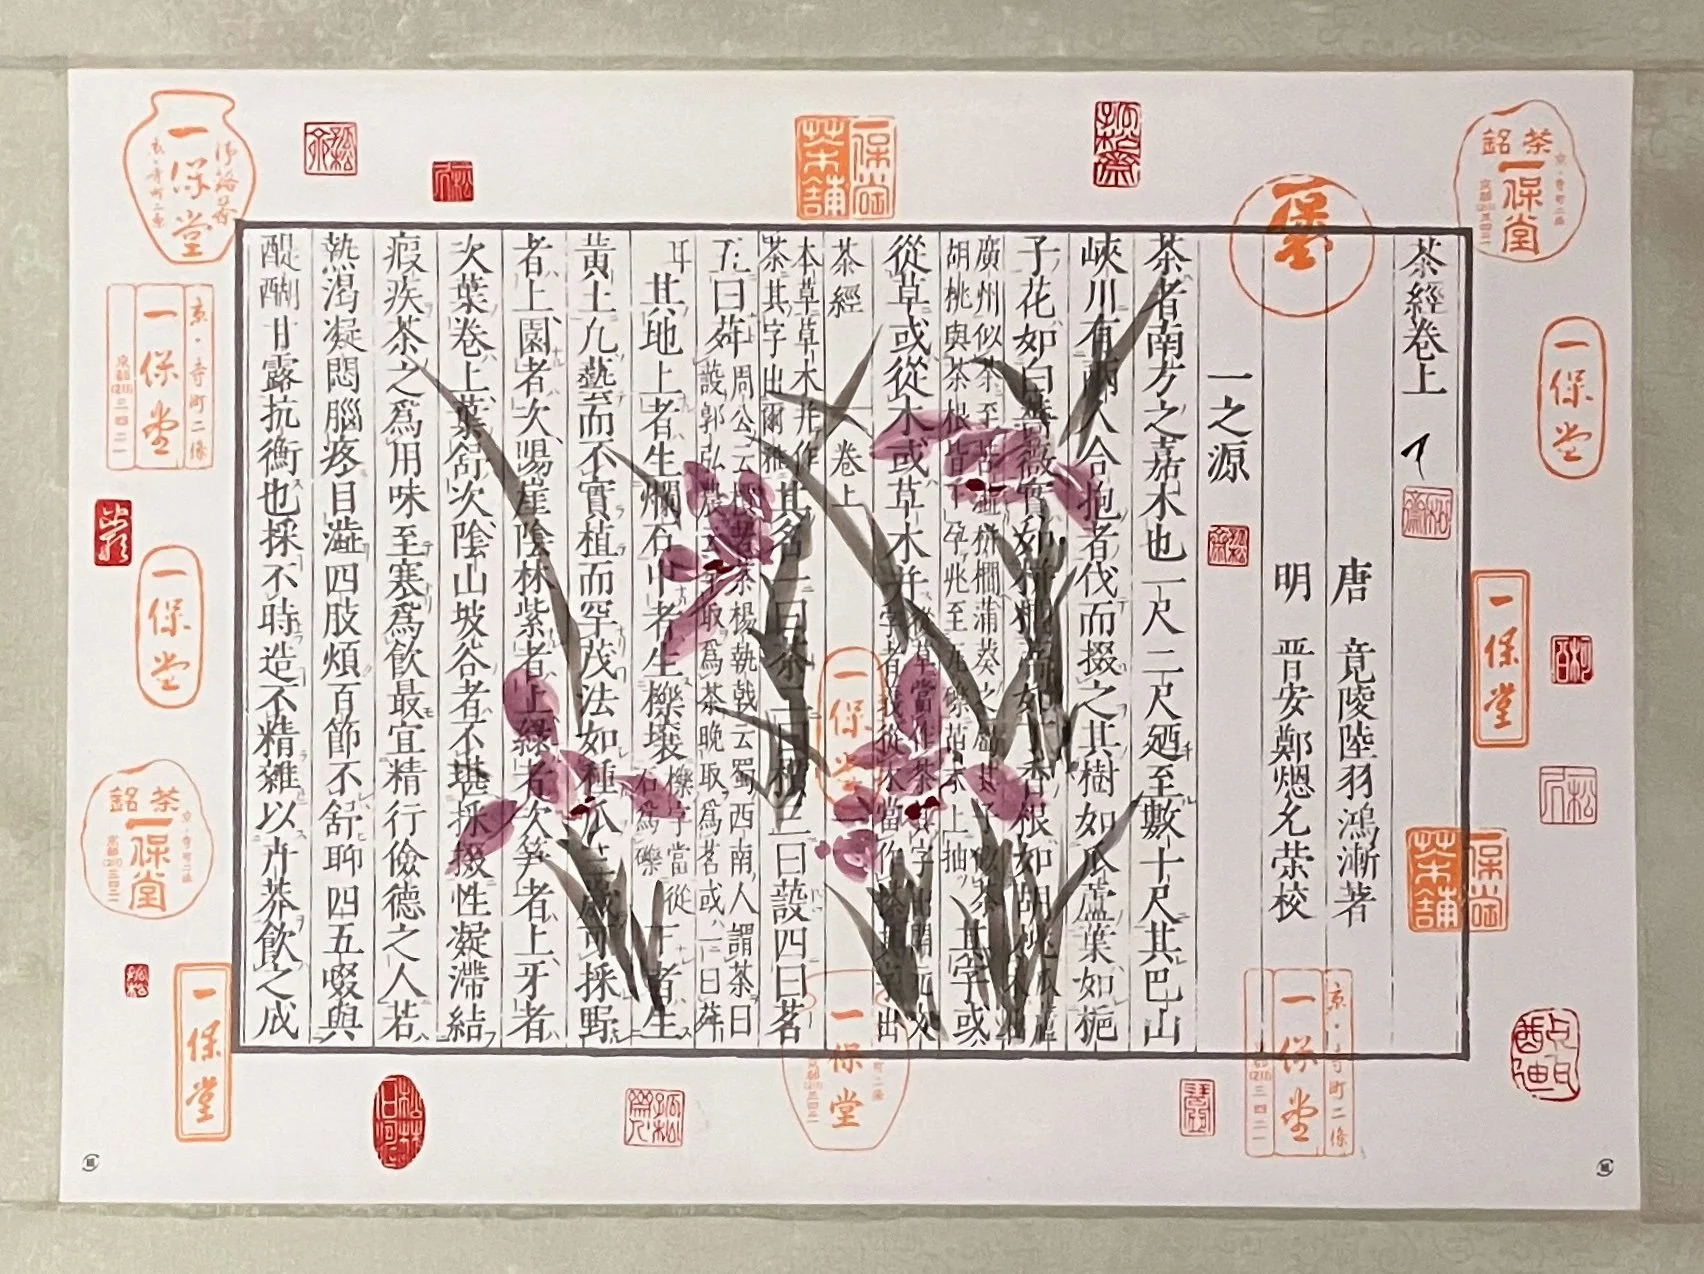 茶經卷上
唐 竟陵陸羽鴻漸著
明 晋安鄭熜允荣校
一之源
茶者南方之嘉木也一尺二尺廼至數十尺其巴山
峽川有兩人合抱者伐而掇之其樹如瓜蘆葉如梔
子花如白薔薇實如栟櫚蒂如丁香根如胡桃瓜蘆木
廣州似茶至苦澁栟櫚蒲葵之屬其子似茶
胡桃與茶根皆下孕兆至瓦礫苗木上抽
其字或
從草或從木或草木并
從草當作茶其字出開元文
字音義從木當作其字出
茶經 卷上
本草草木并作
茶其字出爾雅
其名一曰茶二曰檟三曰蔎四曰茗
五曰荈
周公云檟苦茶楊執戟云蜀西南人謂茶曰
蔎郭弘農云早取爲茶晚取爲茗或一曰荈
耳
其地上者生爛石中者生櫟壤
櫟字當從
石爲礫
下者生
黃土凢藝而不實植而罕茂法如種瓜三歲可採野
者上園者次陽崖陰林紫者上綠者次笋者上牙者
次葉卷上葉舒次陰山坡谷者不堪採掇性凝滯結
瘕疾茶之爲用味至寒爲飲最宜精行儉德之人若
熱渴凝悶腦疼目澁四肢煩百節不舒聊四五啜與
醍醐甘露抗衡也採不時造不精雜以卉莽飲之成
銘茶
一保堂
一保堂
一保堂
一保堂茶舗
一保堂
京・寺町二條
一保堂茶舗
一保堂
一保堂
一保堂
京・寺町二條
一保堂
一保堂
銘茶
一保堂
一保堂